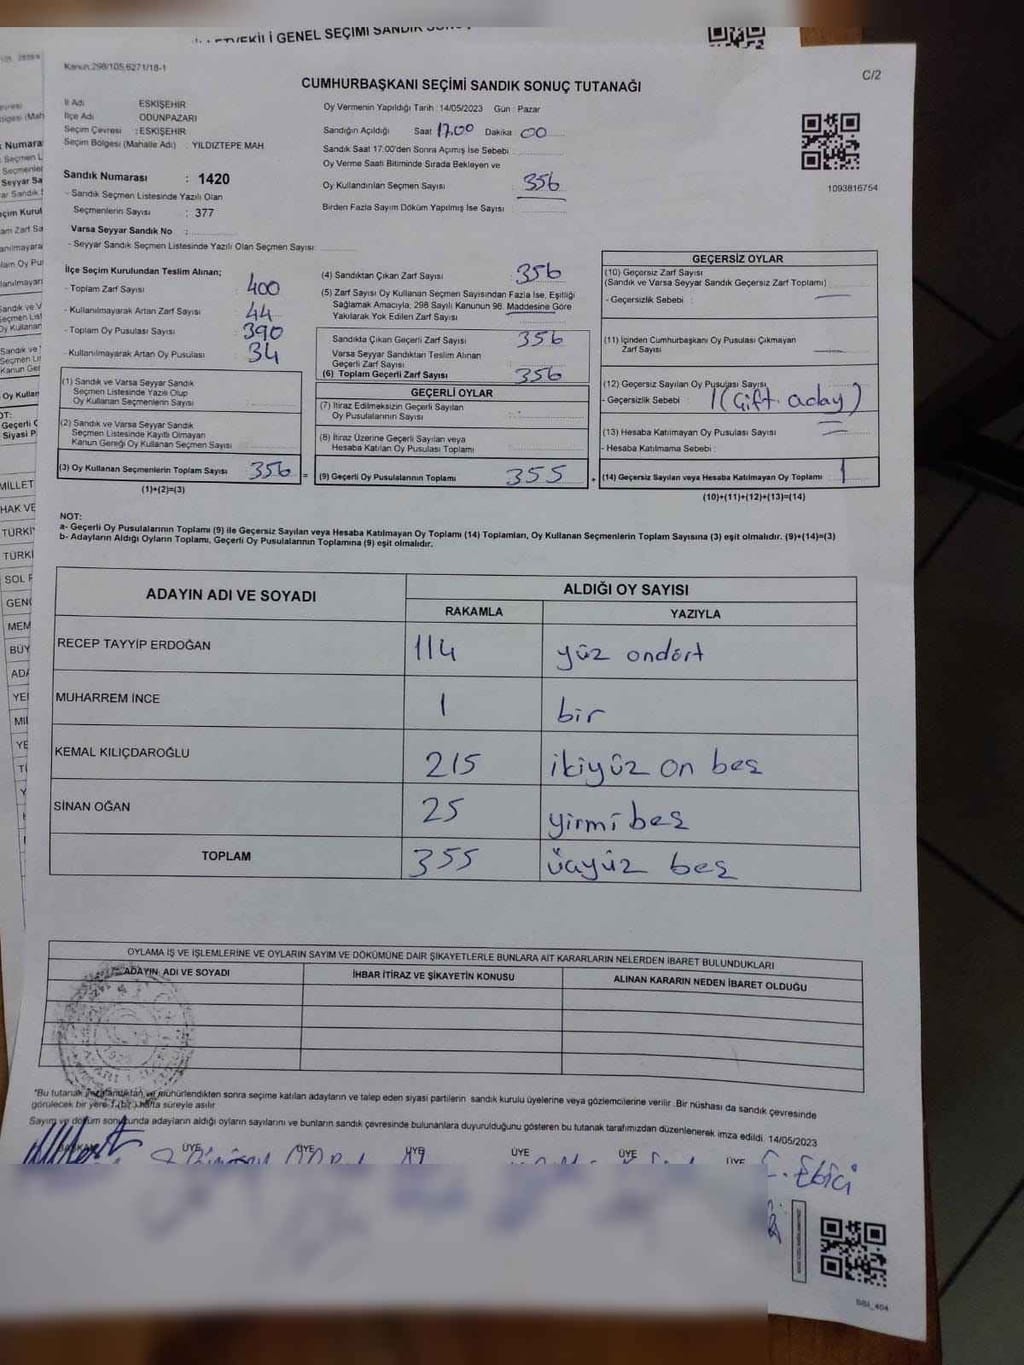 GENEL SEÇİMİ SANDIK
Kanun:298/105,6271/18-1
C/2
CUMHURBAŞKANI SEÇİMİ SANDIK SONUÇ TUTANAĞI
İl Adı ESKİŞEHİR
İlçe Adı ODUNPAZARI
Seçim Çevresi : ESKİŞEHİR
Seçim Bölgesi (Mahalle Adı) : YILDIZTEPE MAH
Oy Vermenin Yapıldığı Tarih : 14/05/2023 Gün : Pazar
Sandığın Açıldığı Saat 17.00 Dakika 00
Sandık Saat 17:00'den Sonra Açımış İse Sebebi :
Oy Verme Saati Bitiminde Sırada Bekleyen ve
Oy Kullandırılan Seçmen Sayısı : 356
Birden Fazla Sayım Döküm Yapılmış İse Sayısı :
1093816754
Sandık Numarası : 1420
- Sandık Seçmen Listesinde Yazılı Olan
Seçmenlerin Sayısı : 377
Varsa Seyyar Sandık No :
- Seyyar Sandık Seçmen Listesinde Yazılı Olan Seçmen Sayısı:
İlçe Seçim Kurulundan Teslim Alınan;
- Toplam Zarf Sayısı : 400
- Kullanılmayarak Artan Zarf Sayısı : 44
- Toplam Oy Pusulası Sayısı : 390
- Kullanılmayarak Artan Oy Pusulası : 34
(1) Sandık ve Varsa Seyyar Sandık
Seçmen Listesinde Yazılı Olup
Oy Kullanan Seçmenlerin Sayısı :
(2) Sandık ve Varsa Seyyar Sandık
Seçmen Listesinde Kayıtlı Olmayan
Kanun Gereği Oy Kullanan Seçmen Sayısı :
(3) Oy Kullanan Seçmenlerin Toplam Sayısı 356
(1)+(2)=(3)
(4) Sandıktan Çıkan Zarf Sayısı : 356
(5) Zarf Sayısı Oy Kullanan Seçmen Sayısından Fazla İse, Eşitliği
Sağlamak Amacıyla, 298 Sayılı Kanunun 98. Maddesine Göre
Yakılarak Yok Edilen Zarf Sayısı :
Sandıkta Çıkan Geçerli Zarf Sayısı : 356
Varsa Seyyar Sandıktan Teslim Alınan
Geçerli Zarf Sayısı :
(6) Toplam Geçerli Zarf Sayısı : 356
GEÇERLİ OYLAR
(7) İtiraz Edilmeksizin Geçerli Sayılan
Oy Pusulalarının Sayısı :
(8) İtiraz Üzerine Geçerli Sayılan veya
Hesaba Katılan Oy Pusulası Toplamı :
= (9) Geçerli Oy Pusulalarının Toplamı 355 +
GEÇERSİZ OYLAR
(10) Geçersiz Zarf Sayısı
(Sandık ve Varsa Seyyar Sandık Geçersiz Zarf Toplamı) :
- Geçersizlik Sebebi : —
(11) İçinden Cumhurbaşkanı Oy Pusulası Çıkmayan
Zarf Sayısı : —
(12) Geçersiz Sayılan Oy Pusulası Sayısı
- Geçersizlik Sebebi : 1 (Çift aday)
(13) Hesaba Katılmayan Oy Pusulası Sayısı : —
- Hesaba Katılmama Sebebi :
(14) Geçersiz Sayılan veya Hesaba Katılmayan Oy Toplamı : 1
(10)+(11)+(12)+(13)=(14)
NOT:
a- Geçerli Oy Pusulalarının Toplamı (9) ile Geçersiz Sayılan veya Hesaba Katılmayan Oy Toplamı (14) Toplamları, Oy Kullanan Seçmenlerin Toplam Sayısına (3) eşit olmalıdır. (9)+(14)=(3)
b- Adayların Aldığı Oyların Toplamı, Geçerli Oy Pusulalarının Toplamına (9) eşit olmalıdır.
ADAYIN ADI VE SOYADI ALDIĞI OY SAYISI
RAKAMLA YAZIYLA
RECEP TAYYİP ERDOĞAN 114 yüz ondört
MUHARREM İNCE 1 bir
KEMAL KILIÇDAROĞLU 215 ikiyüz on beş
SİNAN OĞAN 25 yirmi beş
TOPLAM 355 üçyüz beş
OYLAMA İŞ VE İŞLEMLERİNE VE OYLARIN SAYIM VE DÖKÜMÜNE DAİR ŞİKAYETLERLE BUNLARA AİT KARARLARIN NELERDEN İBARET BULUNDUKLARI
ADAYIN ADI VE SOYADI İHBAR İTİRAZ VE ŞİKAYETİN KONUSU ALINAN KARARIN NEDEN İBARET OLDUĞU
*Bu tutanak imzalandıktan ve mühürlendikten sonra seçime katılan adayların ve talep eden siyasi partilerin sandık kurulu üyelerine veya gözlemcilerine verilir. Bir nüshası da sandık çevresinde
görülecek bir yere 1 (bir) hafta süreyle asılır
Sayım ve döküm sonucunda adayların aldığı oyların sayılarını ve bunların sandık çevresinde bulunanlara duyurulduğunu gösteren bu tutanak tarafımızdan düzenlenerek imza edildi. 14/05/2023
ÜYE ÜYE ÜYE ÜYE ÜYE ÜYE